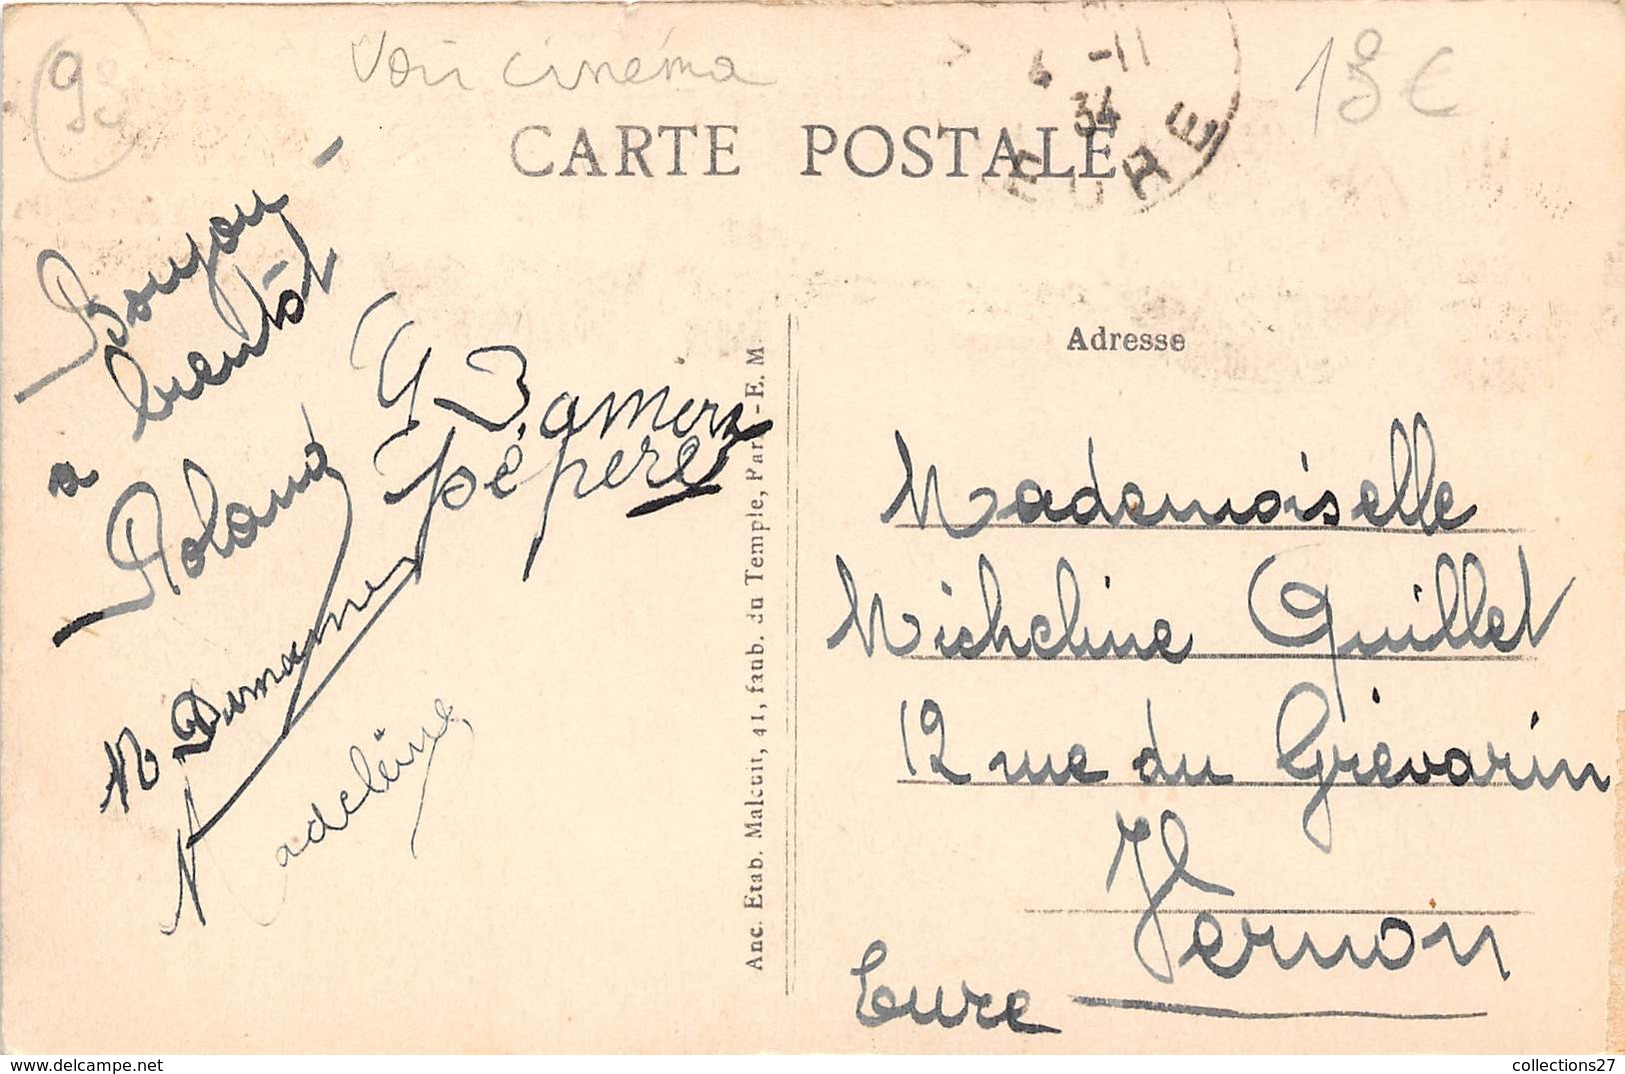 Voir cinéma
15 €
4 -11
34
EURE
CARTE POSTALE
Bonjou
a bientôt
Roland
pépère
Madeleine
Anc. Etab. Malcuit, 41, faub. du Temple, Paris -E. M
Adresse
Mademoiselle
Micheline Quillet
12 rue du Grévarin
Vernon
Eure
collections27